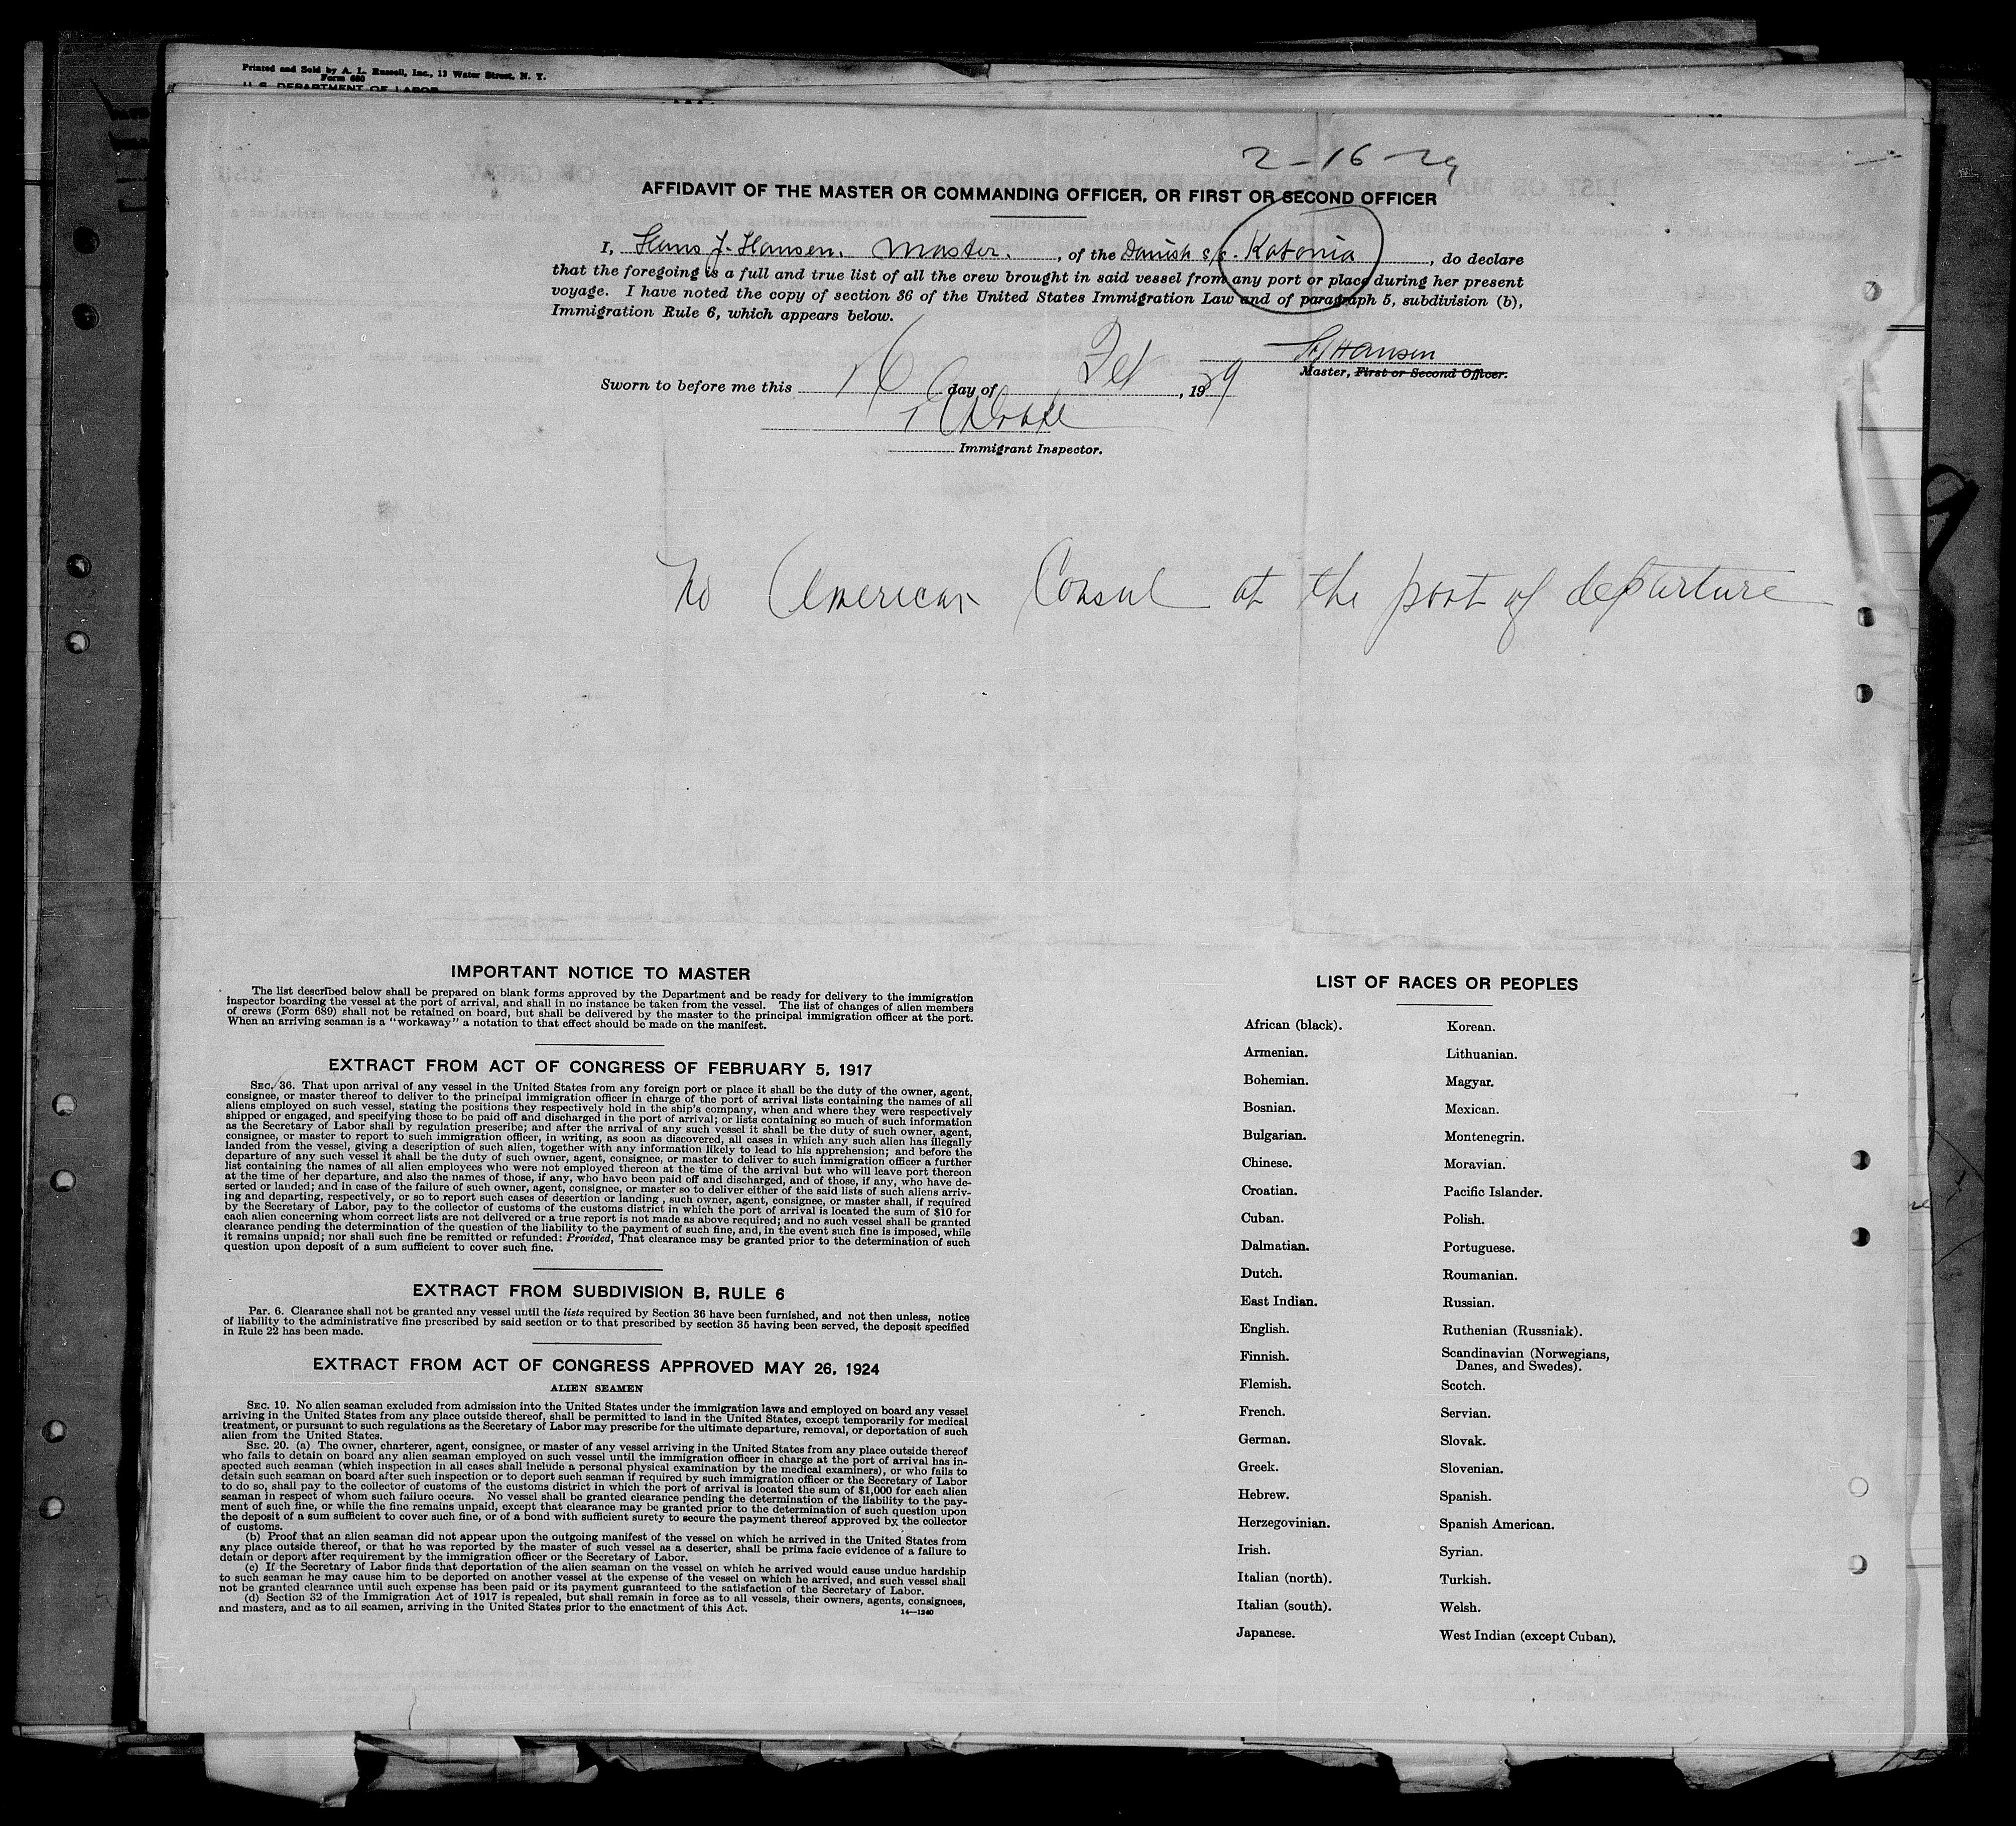 Printed and Sold by A. L. Russell, Inc., 13 Water Street, N. Y.
Form 680
U. S. DEPARTMENT OF LABOR
2-16-29
AFFIDAVIT OF THE MASTER OR COMMANDING OFFICER, OR FIRST OR SECOND OFFICER
I, Hans J. Hansen. Master. , of the Danish s/s. Katonia , do declare
that the foregoing is a full and true list of all the crew brought in said vessel from any port or place during her present
voyage. I have noted the copy of section 36 of the United States Immigration Law and of paragraph 5, subdivision (b),
Immigration Rule 6, which appears below.
HJHansen
Master, First or Second Officer.
Sworn to before me this 16 day of Feb , 1929
Immigrant Inspector.
No American Consul at the port of departure
IMPORTANT NOTICE TO MASTER
The list described below shall be prepared on blank forms approved by the Department and be ready for delivery to the immigration
inspector boarding the vessel at the port of arrival, and shall in no instance be taken from the vessel. The list of changes of alien members
of crews (Form 689) shall not be retained on board, but shall be delivered by the master to the principal immigration officer at the port.
When an arriving seaman is a "workaway" a notation to that effect should be made on the manifest.
EXTRACT FROM ACT OF CONGRESS OF FEBRUARY 5, 1917
SEC. 36. That upon arrival of any vessel in the United States from any foreign port or place it shall be the duty of the owner, agent,
consignee, or master thereof to deliver to the principal immigration officer in charge of the port of arrival lists containing the names of all
aliens employed on such vessel, stating the positions they respectively hold in the ship's company, when and where they were respectively
shipped or engaged, and specifying those to be paid off and discharged in the port of arrival; or lists containing so much of such information
as the Secretary of Labor shall by regulation prescribe; and after the arrival of any such vessel it shall be the duty of such owner, agent,
consignee, or master to report to such immigration officer, in writing, as soon as discovered, all cases in which any such alien has illegally
landed from the vessel, giving a description of such alien, together with any information likely to lead to his apprehension; and before the
departure of any such vessel it shall be the duty of such owner, agent, consignee, or master to deliver to such immigration officer a further
list containing the names of all alien employees who were not employed thereon at the time of the arrival but who will leave port thereon
at the time of her departure, and also the names of those, if any, who have been paid off and discharged, and of those, if any, who have de-
serted or landed; and in case of the failure of such owner, agent, consignee, or master so to deliver either of the said lists of such aliens arriv-
ing and departing, respectively, or so to report such cases of desertion or landing , such owner, agent, consignee, or master shall, if required
by the Secretary of Labor, pay to the collector of customs of the customs district in which the port of arrival is located the sum of $10 for
each alien concerning whom correct lists are not delivered or a true report is not made as above required; and no such vessel shall be granted
clearance pending the determination of the question of the liability to the payment of such fine, and, in the event such fine is imposed, while
it remains unpaid; nor shall such fine be remitted or refunded: Provided, That clearance may be granted prior to the determination of such
question upon deposit of a sum sufficient to cover such fine.
EXTRACT FROM SUBDIVISION B, RULE 6
Par. 6. Clearance shall not be granted any vessel until the lists required by Section 36 have been furnished, and not then unless, notice
of liability to the administrative fine prescribed by said section or to that prescribed by section 35 having been served, the deposit specified
in Rule 22 has been made.
EXTRACT FROM ACT OF CONGRESS APPROVED MAY 26, 1924
ALIEN SEAMEN
SEC. 19. No alien seaman excluded from admission into the United States under the immigration laws and employed on board any vessel
arriving in the United States from any place outside thereof, shall be permitted to land in the United States, except temporarily for medical
treatment, or pursuant to such regulations as the Secretary of Labor may prescribe for the ultimate departure, removal, or deportation of such
alien from the United States.
SEC. 20. (a) The owner, charterer, agent, consignee, or master of any vessel arriving in the United States from any place outside thereof
who fails to detain on board any alien seaman employed on such vessel until the immigration officer in charge at the port of arrival has in-
spected such seaman (which inspection in all cases shall include a personal physical examination by the medical examiners), or who fails to
detain such seaman on board after such inspection or to deport such seaman if required by such immigration officer or the Secretary of Labor
to do so, shall pay to the collector of customs of the customs district in which the port of arrival is located the sum of $1,000 for each alien
seaman in respect of whom such failure occurs. No vessel shall be granted clearance pending the determination of the liability to the pay-
ment of such fine, or while the fine remains unpaid, except that clearance may be granted prior to the determination of such question upon
the deposit of a sum sufficient to cover such fine, or of a bond with sufficient surety to secure the payment thereof approved by the collector
of customs.
(b) Proof that an alien seaman did not appear upon the outgoing manifest of the vessel on which he arrived in the United States from
any place outside thereof, or that he was reported by the master of such vessel as a deserter, shall be prima facie evidence of a failure to
detain or deport after requirement by the immigration officer or the Secretary of Labor.
(c) If the Secretary of Labor finds that deportation of the alien seaman on the vessel on which he arrived would cause undue hardship
to such seaman he may cause him to be deported on another vessel at the expense of the vessel on which he arrived, and such vessel shall
not be granted clearance until such expense has been paid or its payment guaranteed to the satisfaction of the Secretary of Labor.
(d) Section 32 of the Immigration Act of 1917 is repealed, but shall remain in force as to all vessels, their owners, agents, consignees,
and masters, and as to all seamen, arriving in the United States prior to the enactment of this Act.
14—1240
LIST OF RACES OR PEOPLES
African (black). Korean.
Armenian. Lithuanian.
Bohemian. Magyar.
Bosnian. Mexican.
Bulgarian. Montenegrin.
Chinese. Moravian.
Croatian. Pacific Islander.
Cuban. Polish.
Dalmatian. Portuguese.
Dutch. Roumanian.
East Indian. Russian.
English. Ruthenian (Russniak).
Finnish. Scandinavian (Norwegians,
Danes, and Swedes).
Flemish. Scotch.
French. Servian.
German. Slovak.
Greek. Slovenian.
Hebrew. Spanish.
Herzegovinian. Spanish American.
Irish. Syrian.
Italian (north). Turkish.
Italian (south). Welsh.
Japanese. West Indian (except Cuban).